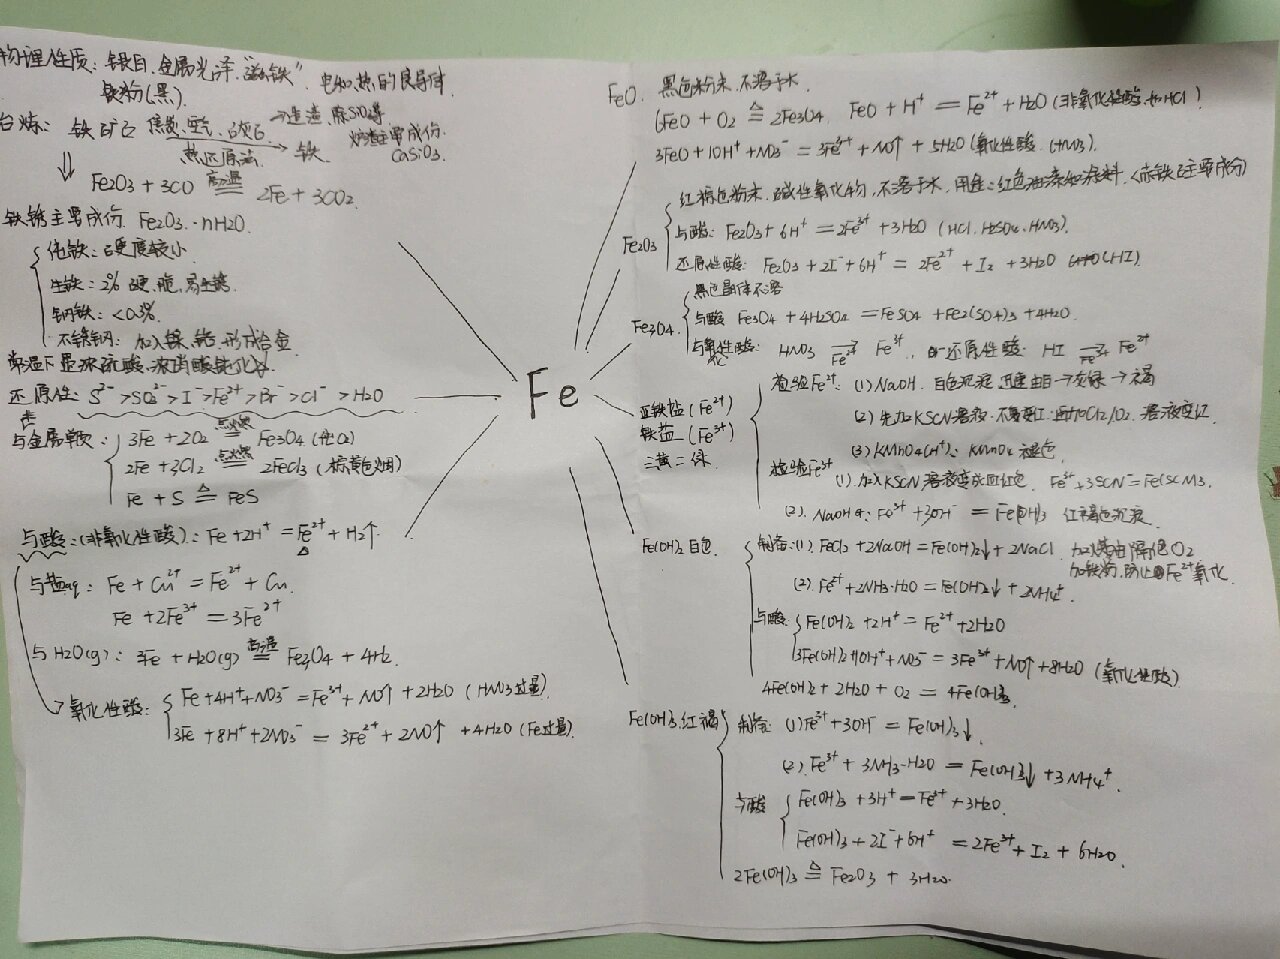 物理性质：银白、金属光泽、"磁铁"、电和热的良导体
铁粉(黑).
铁矿石 焦炭、空气、石灰石 → 铁
热还原法
→造渣,除SiO2等
炉渣主要成份
CaSiO3.
⇓ Fe2O3 + 3CO 高温 == 2Fe + 3CO2.
铁锈主要成份 Fe2O3·nH2O.
纯铁：硬度较小
生铁：2% 硬,脆,易生锈.
钢铁：<0.3%.
不锈钢：加入镍、铬,形成合金
常温下显浓硫酸、浓硝酸钝化
还原性：S²⁻>SO3²⁻>I⁻>Fe²⁺>Br⁻>Cl⁻>H2O
与金属单质：
3Fe + 2O2 点燃 == Fe3O4 (纯O2)
2Fe + 3Cl2 点燃 == 2FeCl3 (棕黄色烟)
Fe + S ≜ FeS
与酸：(非氧化性酸)：Fe + 2H⁺ = Fe²⁺ + H2↑
与盐aq：Fe + Cu²⁺ = Fe²⁺ + Cu.
Fe + 2Fe³⁺ = 3Fe²⁺
与H2O(g)：3Fe + H2O(g) 高温 == Fe3O4 + 4H2.
→氧化性酸：
Fe+4H⁺+NO3⁻=Fe³⁺+NO↑+2H2O (HNO3过量)
3Fe+8H⁺+2NO3⁻ = 3Fe²⁺+2NO↑ +4H2O (Fe过量)
Fe
FeO. 黑色粉末,不溶于水
6FeO + O2 ≜ 2Fe3O4 FeO + H⁺ = Fe²⁺ + H2O (非氧化性酸,如HCl)
3FeO + 10H⁺ + NO3⁻ = 3Fe³⁺ + NO↑ + 5H2O (氧化性酸 (HNO3).
Fe2O3
红棕色粉末,碱性氧化物,不溶于水,用途：红色油漆和涂料.(赤铁矿主要成分)
与酸：Fe2O3 + 6H⁺ = 2Fe³⁺ + 3H2O (HCl、H2SO4、HNO3).
还原性酸：Fe2O3 + 2I⁻ + 6H⁺ = 2Fe²⁺ + I2 + 3H2O (HI).
Fe3O4.
黑色晶体不溶
与酸 Fe3O4 + 4H2SO4 = FeSO4 + Fe2(SO4)3 + 4H2O.
与氧化性酸：HNO3 →Fe²⁺ Fe³⁺,与还原性酸：HI →Fe³⁺ Fe²⁺
亚铁盐(Fe²⁺)
铁盐 (Fe³⁺)
三黄二绿
检验Fe²⁺：(1) NaOH. 白色沉淀,迅速由白→灰绿→红褐
(2) 先加KSCN溶液.不变红.再加Cl2/O2. 溶液变红.
(3) KMnO4(H⁺)：KMnO4 褪色.
检验Fe³⁺
(1) 加入KSCN溶液变成血红色. Fe³⁺+3SCN⁻=Fe(SCN)3.
(2). NaOH: Fe³⁺ + 3OH⁻ = Fe(OH)3 红褐色沉淀.
Fe(OH)2 白色
制备：(1) FeCl2 + 2NaOH = Fe(OH)2↓ + 2NaCl 加入煤油隔绝O2
加铁粉,防止Fe²⁺氧化.
(2). Fe²⁺ + 2NH3·H2O = Fe(OH)2↓ + 2NH4⁺.
与酸：
Fe(OH)2 + 2H⁺ = Fe²⁺ + 2H2O
3Fe(OH)2+10H⁺+NO3⁻ = 3Fe³⁺+NO↑+8H2O (氧化性酸)
4Fe(OH)2 + 2H2O + O2 = 4Fe(OH)3.
Fe(OH)3.红褐
制备：(1) Fe³⁺ + 3OH⁻ = Fe(OH)3↓.
(2). Fe³⁺ + 3NH3·H2O = Fe(OH)3↓ + 3NH4⁺.
与酸
Fe(OH)3 + 3H⁺ = Fe³⁺ + 3H2O.
Fe(OH)3 + 2I⁻ + 6H⁺ = 2Fe³⁺ + I2 + 6H2O.
2Fe(OH)3 ≜ Fe2O3 + 3H2O.